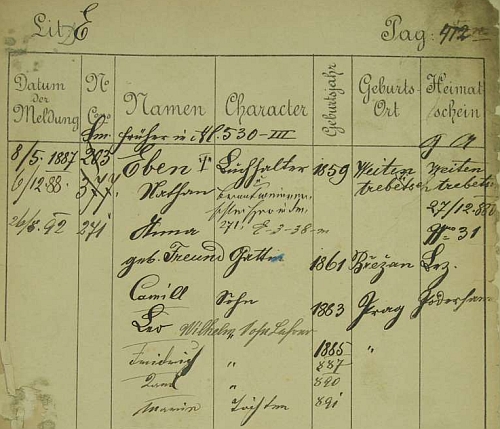 Litz E Pag: 412
Datum der Meldung N C. Namen Character Geburtsjahr Geburts-Ort Heimat schein
früher in Nr. 530-III
8/5. 1887 283 Eben Buchhalter 1859 Weiten Weiten
6/12.88. Nathan trebetsch trebetsch
27/12.88
26/5. 92 271 Anna No 31
geb. Freund Gattin 1861 Břežan Bez.
Camill Sohn 1883 Prag Podersam
Leo Wilhelm, Sohn Lehrer
1885 "
Fridrich " 887
Paul " 890
Marie Tochter 891